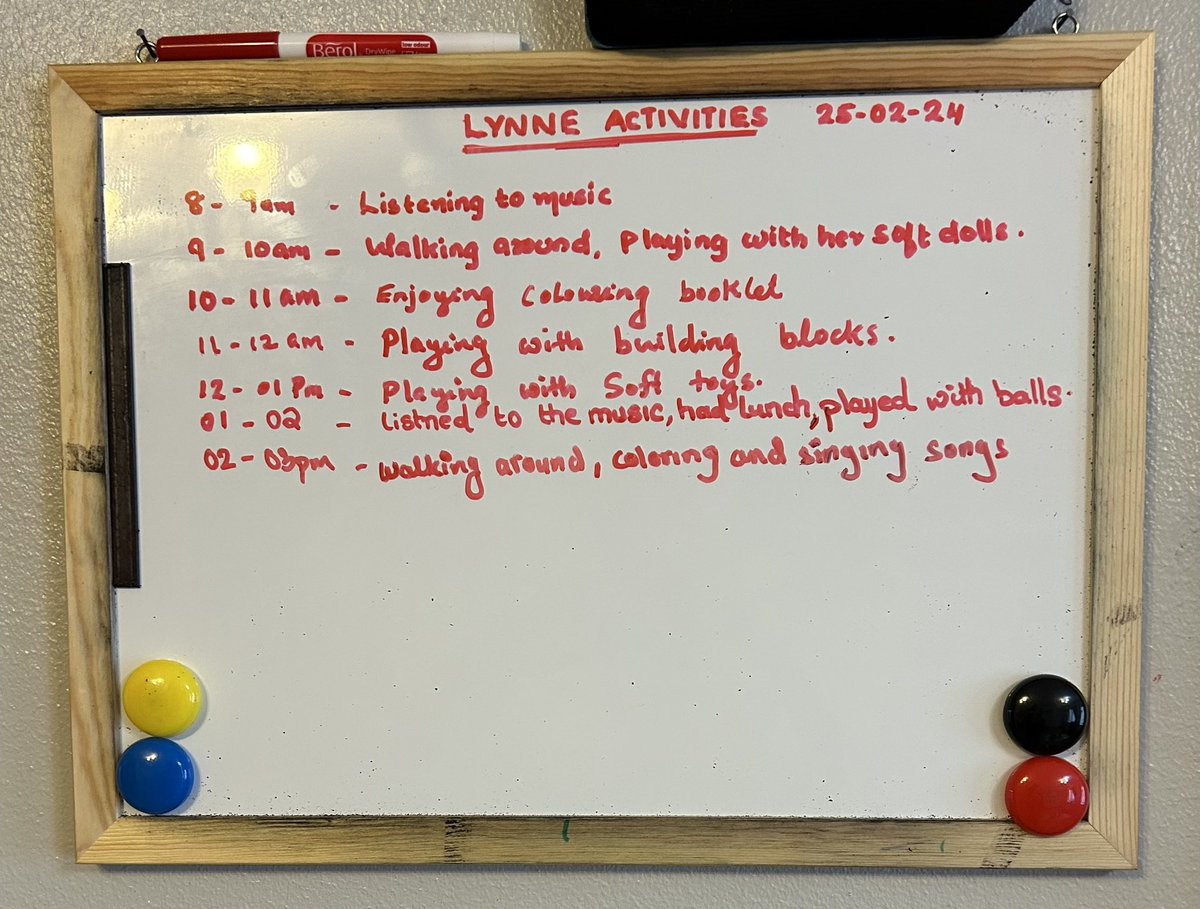 Berol DryWipe low odour
LYNNE ACTIVITIES 25-02-24
8 - 9am - Listening to music
9 - 10am - Walking around, Playing with her soft dolls.
10 - 11am - Enjoying Colouring booklet
11 - 12am - Playing with building blocks.
12 - 01 Pm - Playing with Soft toys.
01 - 02 - Listned to the music, had lunch, played with balls.
02 - 03pm - walking around, coloring and singing songs